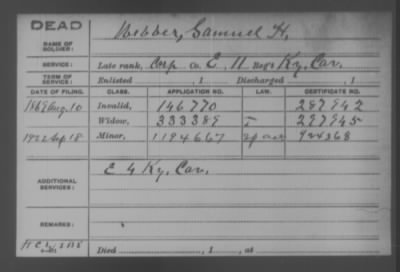 DEAD
Webber, Samuel H.
NAME OF SOLDIER:
SERVICE: Late rank, Corp Co. E, 11 Reg't Ky. Cav.
TERM OF SERVICE: Enlisted , 1 Discharged , 1
DATE OF FILING. CLASS. APPLICATION NO. LAW. CERTIFICATE NO.
1869 Aug. 10 Invalid, 146770 287942
Widow, 333389 297945
1922 Sep 18 Minor, 1194667 924368
ADDITIONAL SERVICES: E 4 Ky. Cav.
REMARKS:
Died , 1 , at